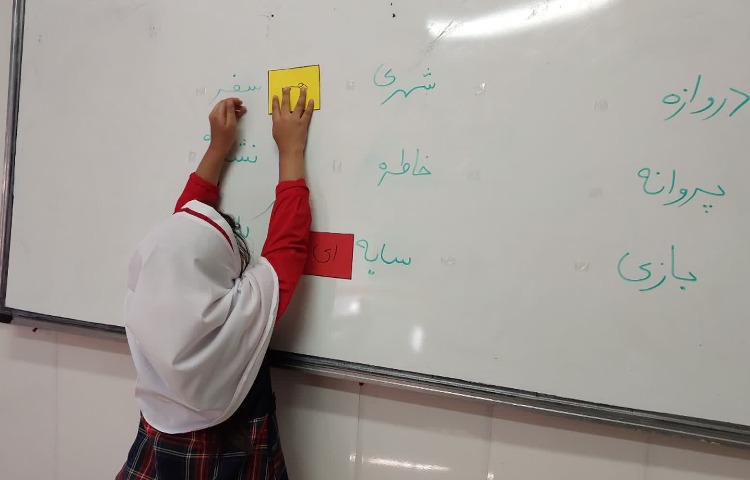 دروازه شهری سفر
پروانه خاطره
بازی سایه ای